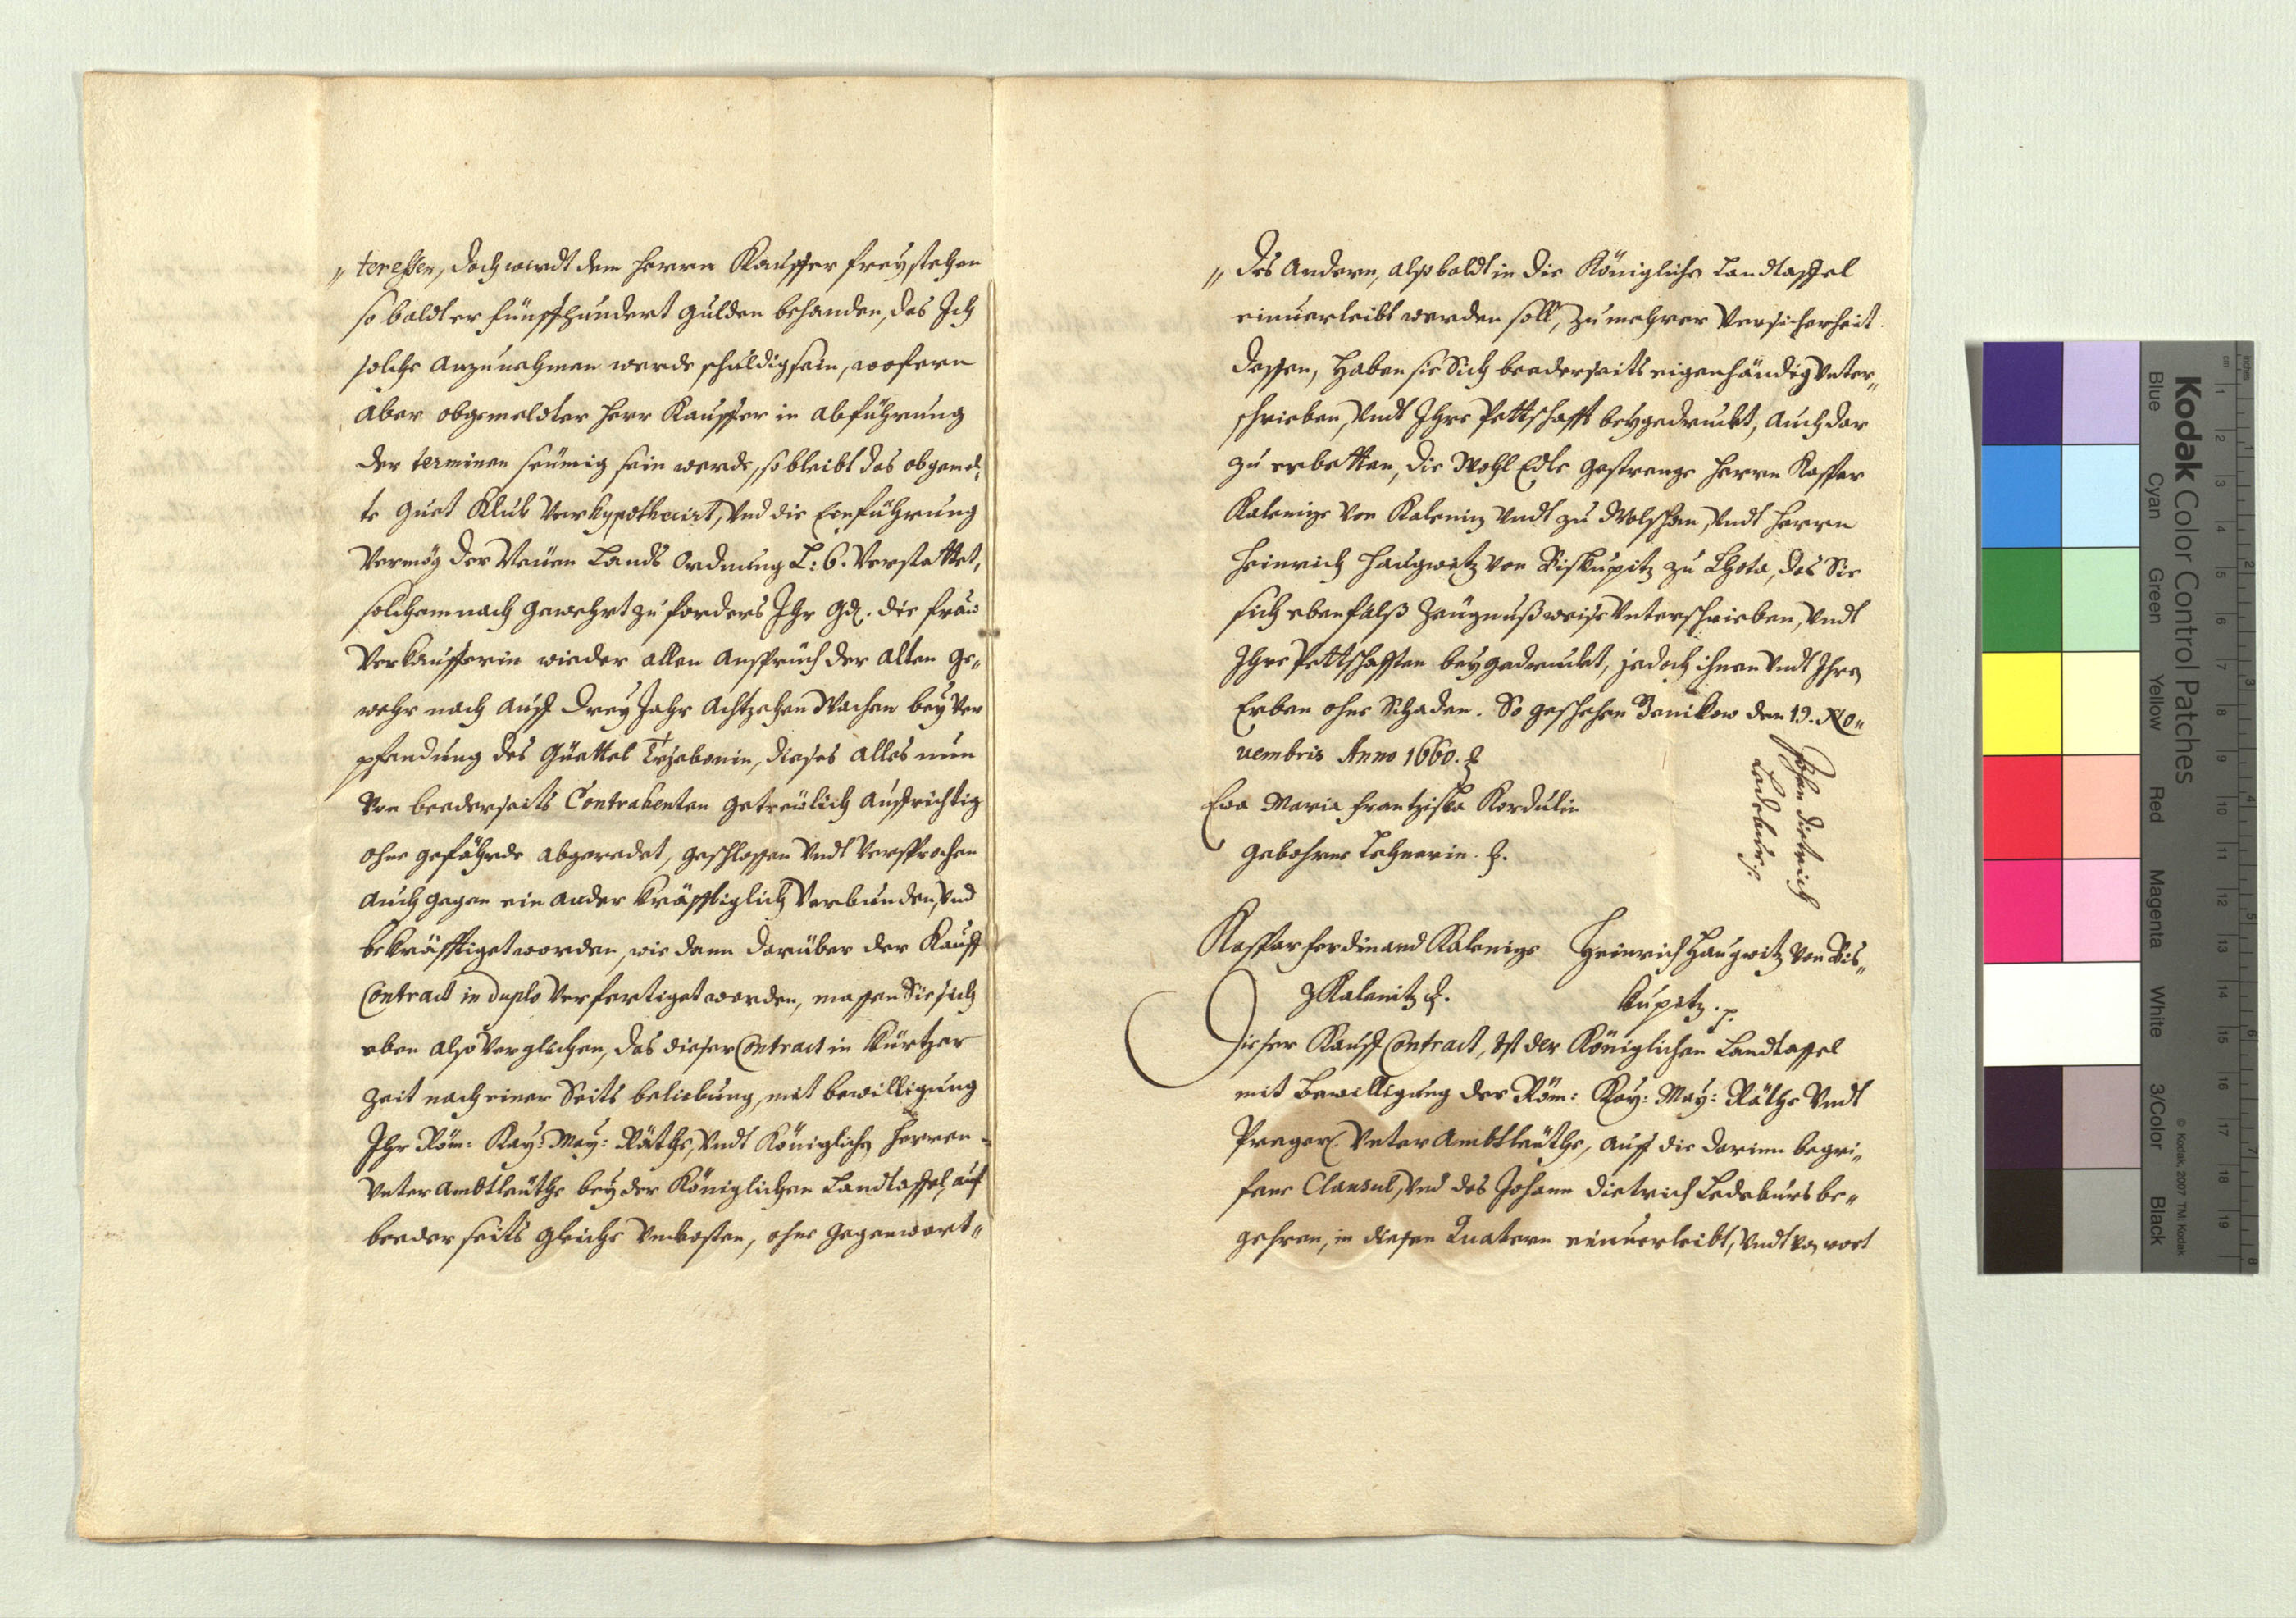 „teressen, doch wirdt dem Herrn Kauffer freystehen
so baldt er fünffhundert gulden behanden, das Ich
solche anzunehmen werde schuldig sein, wofern
aber obgemeldter Herr Kauffer in abführung
der terminen seümig sein werde, so bleibt das obgemel„
te guet Kluk verhypothecirt, und die Einführung
Vermög der Neüen Lands Ordnung L: 6. verstattet,
solchemnach gewehrt zu forders Ihr Gd. die fraw
Verkaufferin wieder allen anspruch der alten ge„
wehr nach auff drey Jahr achtzehen Wochen bey ver
pfendung des Güettel Trzebonin, dieses alles nun
von beederseits Contrahenten getreülich auffrichtig
ohne gefährde abgeredet, geschlossen undt versprochen
auch gegen ein ander kräfftiglich verbunden, und
bekräfftiget worden, wie dann darüber der Kauff
Contract in duplo verfertiget worden, massen Sie sich
eben also verglichen, das dieser Contract in kürtzer
Zeit nach einer Seits beliebung, mit bewilligung
Ihr Röm: Kay: May: Räthe, undt Königliche Herren
Unter Ambtleüthe bey der Königlichen Landtaffel, auf
beeder seits gleiche unkosten, ohne gegenwart„
„des Andern, alsobaldt in die Königliche Landtaffel
einuerleibt werden soll, zu mehrer Versicherheit
dessen, haben sie Sich beederseits eigenhändig unter„
schrieben, undt Ihre Pettschafft beygedruckt, auch dar
zu erbetten, die Wohl Edle gestrenge Herrn Kaspar
Kalenize von Kaleniz undt zu Wolschan, undt Herrn
Heinrich Haugwitz von Biskupitz zu Lhota, das Sie
sich ebenfalß Zeügnuß weise unterschrieben, undt
Ihre Pettschafften beygedruckt, jedoch ihnen undt Ihren
Erben ohne Schaden. So geschehen Benikow den 19. No„
uembris Anno 1660.
Johan dietrich
Ledebuhr.
Eva Maria Frantziska Kordulin
gebohrne Lehnerin.
Kaspar Ferdinand Kalenize
z Kalenitz.
Heinrich Haugwitz von Bis„
kupetz. p.
Dieser Kauff Contract, ist der Königlichen Landtaffel
mit Bewilligung der Röm: Kay: May: Räthe undt
Prager Unter Ambtleüthe, auff die darinn begri„
fene Clausul, und des Johann Dietrich Ledeburs be„
gehren, in diesen Quatern einuerleibt, undt von wort
Kodak Color Control Patches
© Kodak, 2007 TM: Kodak
Blue
Cyan
Green
Yellow
Red
Magenta
White
3/Color
Black
inches
cm
1
2
3
4
5
6
7
8
9
10
11
12
13
14
15
16
17
18
19
1
2
3
4
5
6
7
8